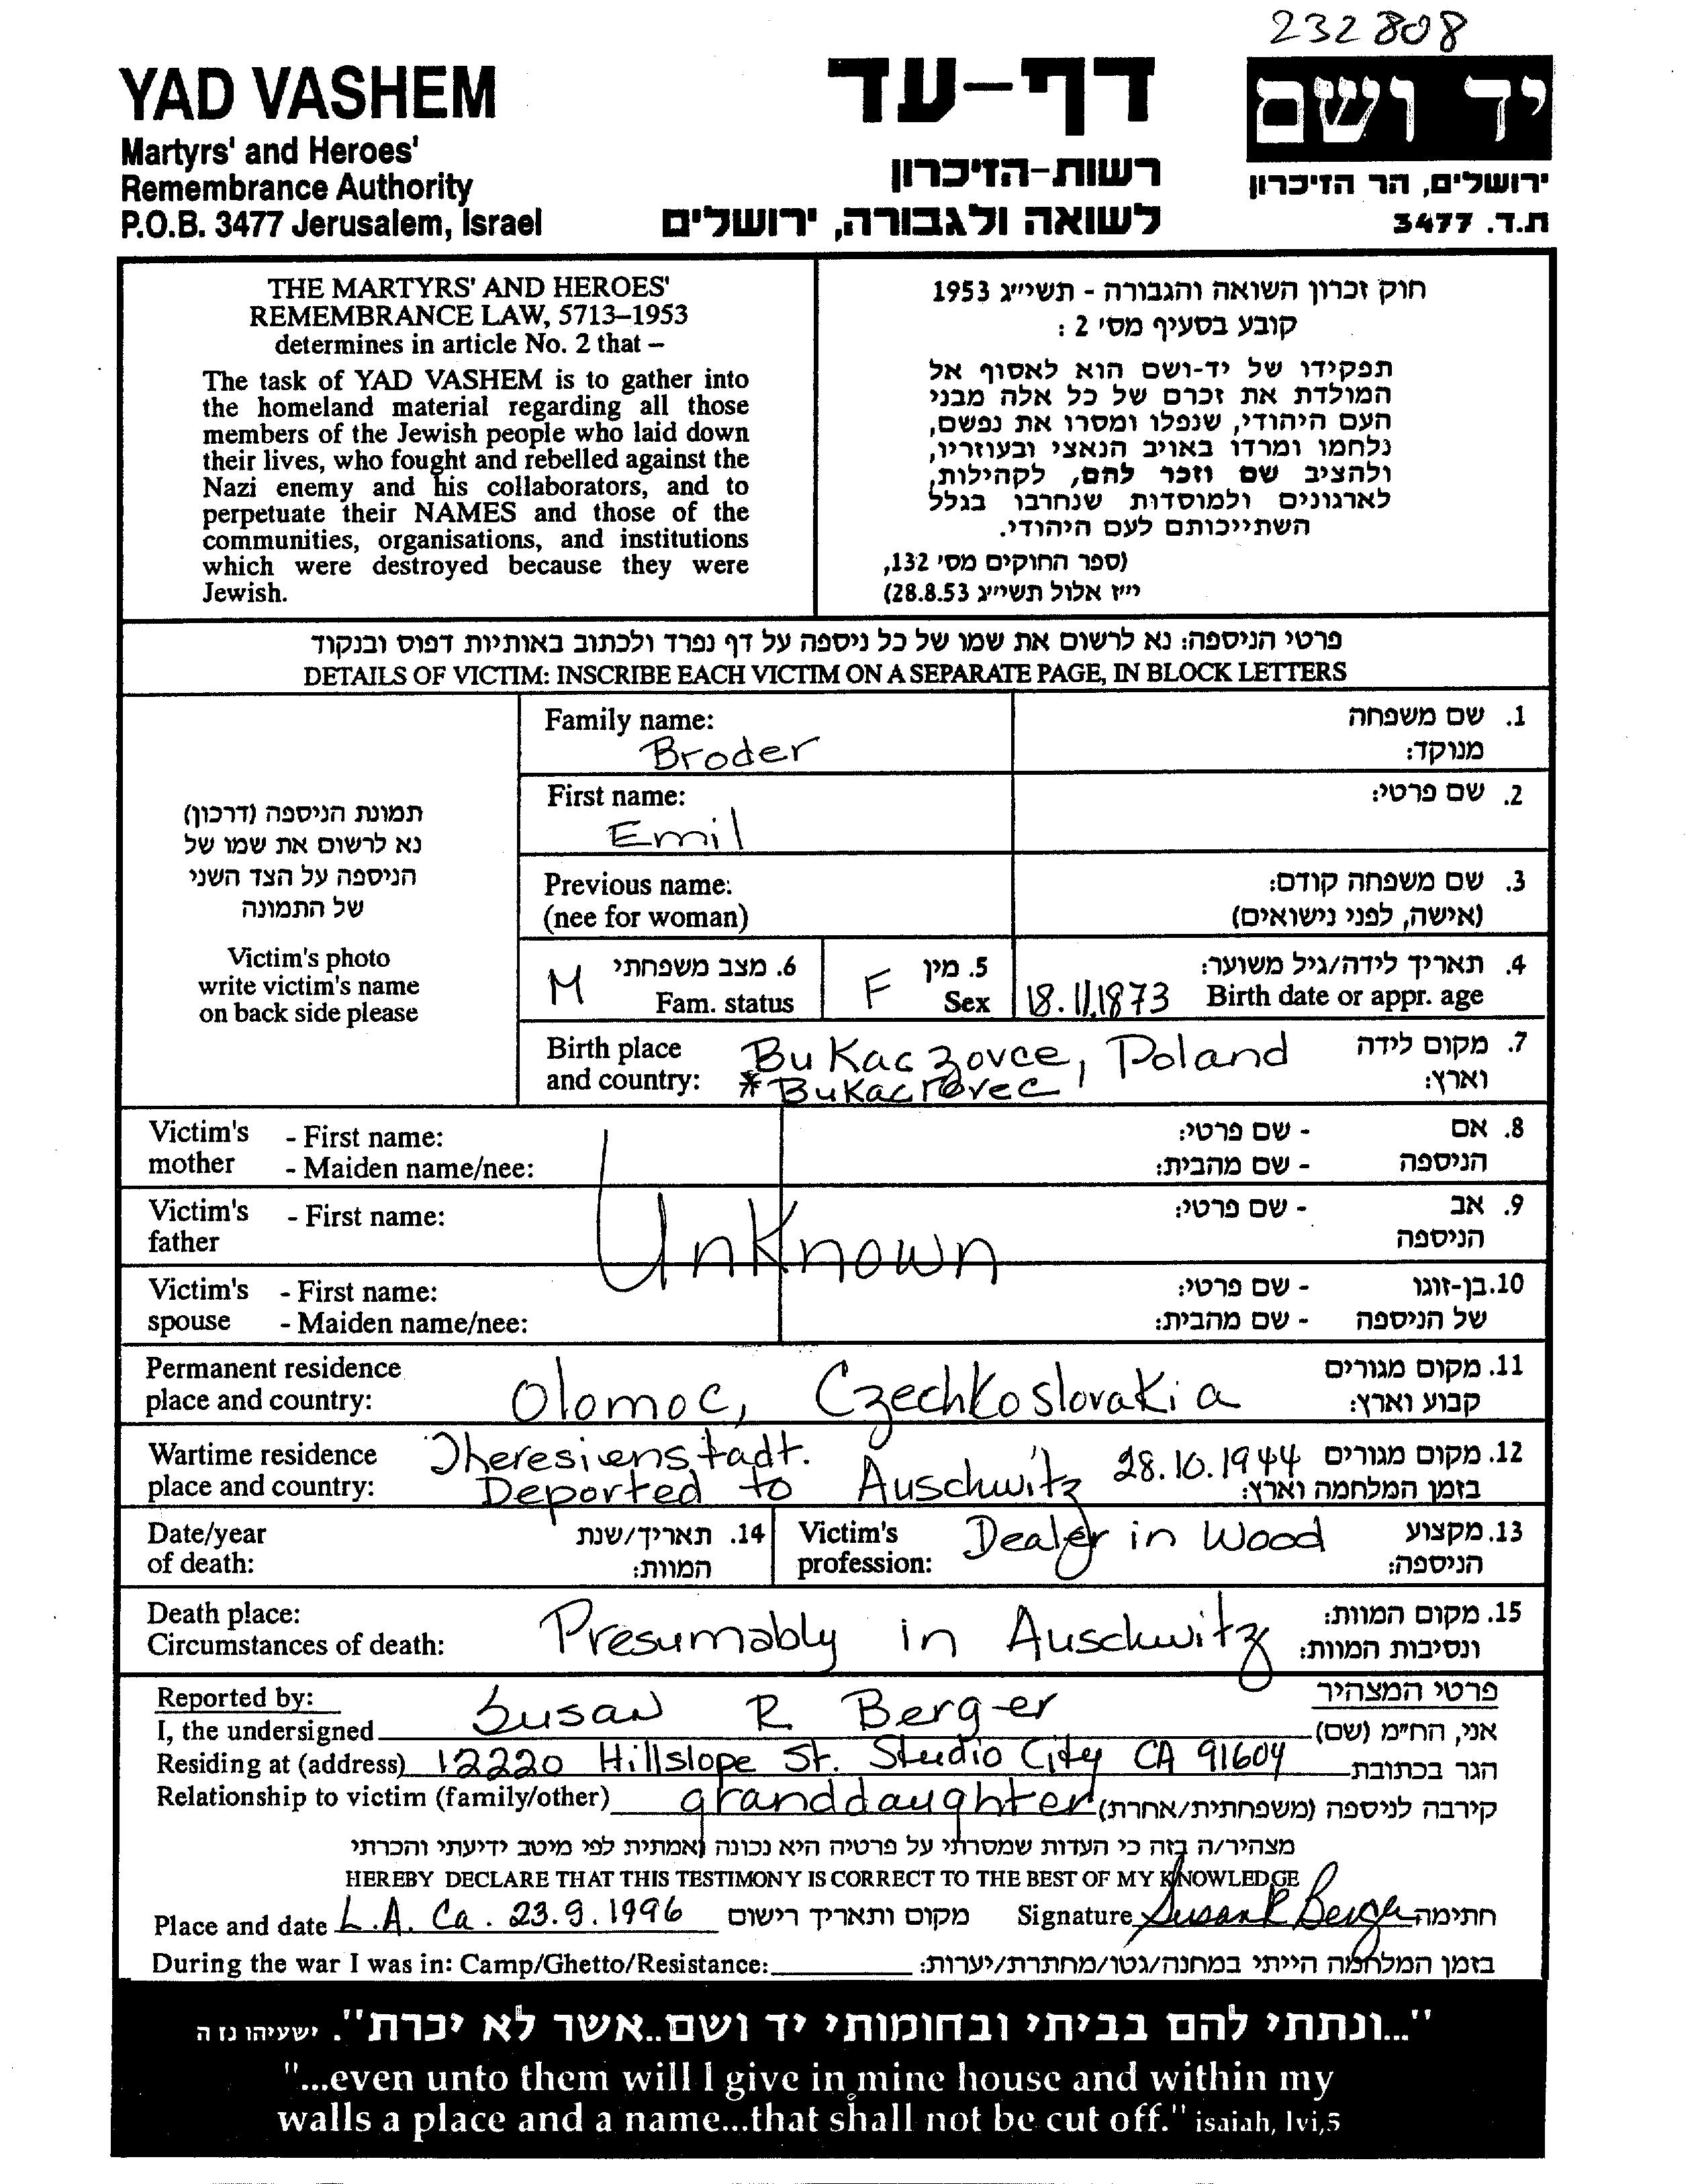 232808
YAD VASHEM
Martyrs' and Heroes'
Remembrance Authority
P.O.B. 3477 Jerusalem, Israel
דף-עד
רשות-הזיכרון
לשואה ולגבורה, ירושלים
יד ושם
ירושלים, הר הזיכרון
ת.ד. 3477
THE MARTYRS' AND HEROES'
REMEMBRANCE LAW, 5713–1953
determines in article No. 2 that –
The task of YAD VASHEM is to gather into
the homeland material regarding all those
members of the Jewish people who laid down
their lives, who fought and rebelled against the
Nazi enemy and his collaborators, and to
perpetuate their NAMES and those of the
communities, organisations, and institutions
which were destroyed because they were
Jewish.
חוק זכרון השואה והגבורה - תשי״ג 1953
קובע בסעיף מס׳ 2 :
תפקידו של יד-ושם הוא לאסוף אל
המולדת את זכרם של כל אלה מבני
העם היהודי, שנפלו ומסרו את נפשם,
נלחמו ומרדו באויב הנאצי ובעוזריו,
ולהציב שם וזכר להם, לקהילות,
לארגונים ולמוסדות שנחרבו בגלל
השתייכותם לעם היהודי.
(ספר החוקים מס׳ 132,
י״ז אלול תשי״ג 28.8.53)
פרטי הניספה: נא לרשום את שמו של כל ניספה על דף נפרד ולכתוב באותיות דפוס ובנקוד
DETAILS OF VICTIM: INSCRIBE EACH VICTIM ON A SEPARATE PAGE, IN BLOCK LETTERS
תמונת הניספה (דרכון)
נא לרשום את שמו של
הניספה על הצד השני
של התמונה
Victim's photo
write victim's name
on back side please
Family name: 1. שם משפחה
Broder מנוקד:
First name: 2. שם פרטי:
Emil
Previous name: 3. שם משפחה קודם:
(nee for woman) (אישה, לפני נישואים)
M 6. מצב משפחתי F 5. מין 4. תאריך לידה/גיל משוער:
Fam. status Sex 18.11.1873 Birth date or appr. age
Birth place Bukaczovce, Poland 7. מקום לידה
and country: * וארץ:
Victim's - First name: - שם פרטי: 8. אם
mother - Maiden name/nee: - שם מהבית: הניספה
Victim's - First name: - שם פרטי: 9. אב
father Unknown הניספה
Victim's - First name: - שם פרטי: 10. בן-זוגו
spouse - Maiden name/nee: - שם מהבית: של הניספה
Permanent residence 11. מקום מגורים
place and country: Olomoc, Czechkoslovakia קבוע וארץ:
Wartime residence Theresienstadt. 12. מקום מגורים
place and country: Deported to Auschwitz 28.10.1944 בזמן המלחמה וארץ:
Date/year 14. תאריך/שנת Victim's Dealer in Wood 13. מקצוע
of death: המוות: profession: הניספה:
Death place: 15. מקום המוות:
Circumstances of death: Presumably in Auschwitz ונסיבות המוות:
Reported by: פרטי המצהיר
I, the undersigned Susan R Berger אני, הח״מ (שם)
Residing at (address) 12220 Hillslope St. Studio City CA 91604 הגר בכתובת
Relationship to victim (family/other) granddaughter קירבה לניספה (משפחתית/אחרת)
מצהיר/ה בזה כי העדות שמסרתי על פרטיה היא נכונה ואמתית לפי מיטב ידיעתי והכרתי
HEREBY DECLARE THAT THIS TESTIMONY IS CORRECT TO THE BEST OF MY KNOWLEDGE
Place and date L.A. Ca. 23.9.1996 מקום ותאריך רישום Signature Susan R Berger חתימה
During the war I was in: Camp/Ghetto/Resistance: בזמן המלחמה הייתי במחנה/גטו/מחתרת/יערות:
"...ונתתי להם בביתי ובחומותי יד ושם..אשר לא יכרת". ישעיהו נז ה
"...even unto them will I give in mine house and within my
walls a place and a name...that shall not be cut off." isaiah, lvi,5